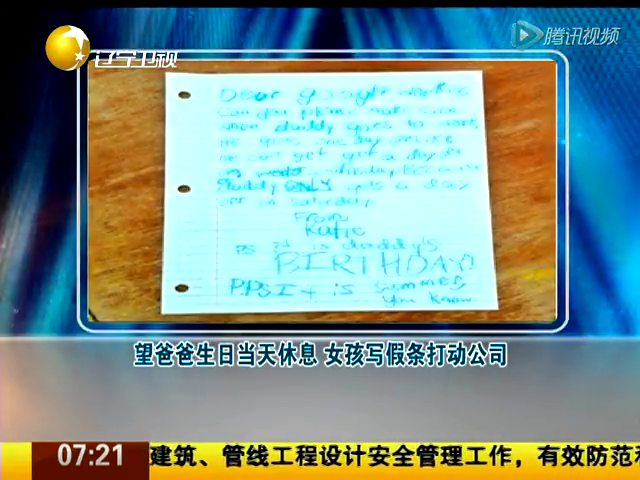 辽宁卫视
腾讯视频
Dear google worker
Can you please make sure
when daddy goes to work
he gets one day
he can get a day off
Because
daddy ONLY gets a day
off on Saturday
From
Katie
PS it is daddy's
BIRTHDAY!
PPS It is summer
you know
望爸爸生日当天休息 女孩写假条打动公司
07:21
建筑、管线工程设计安全管理工作，有效防范